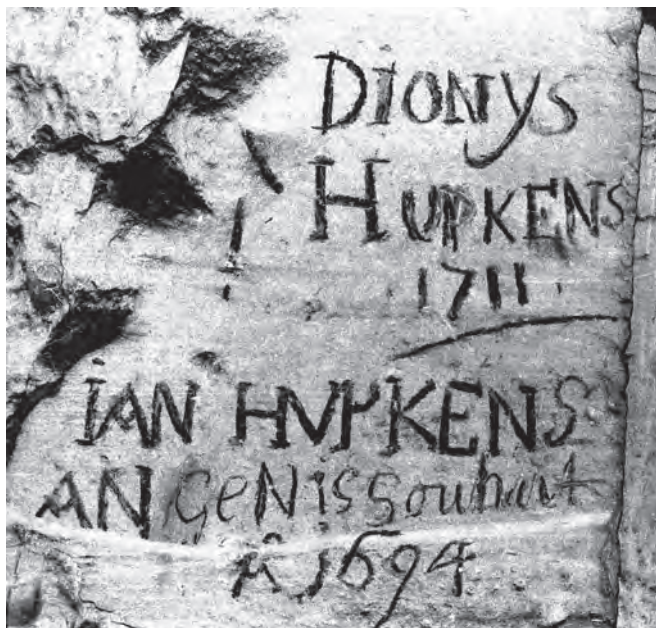 DIONYS
HUPKENS
1711
iAN HVPKENS
AN GeNis Souhait
A 1694